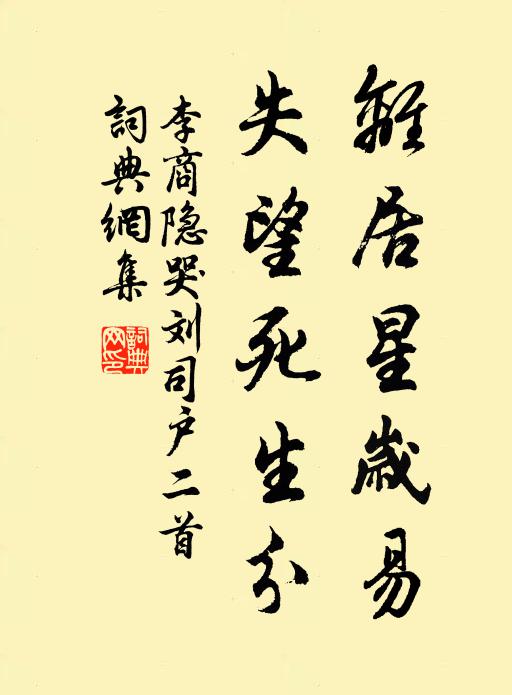 離居星歲易
失望死生分
李商隐哭刘司户二首
詞典網集
詞典網印